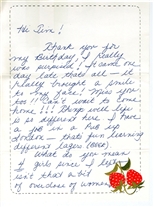 Hi Tim!
Thank you for
my Birthday, I Really
was surprised! It came one
day late thats all — it
really brought a smile
to my face! Miss you
too!! Can't wait to come
home!!! Things with life
is so different here I have
a job in a
that's fun learning
different
What do you mean
4 girls
isn't that a bit
of overdose of women